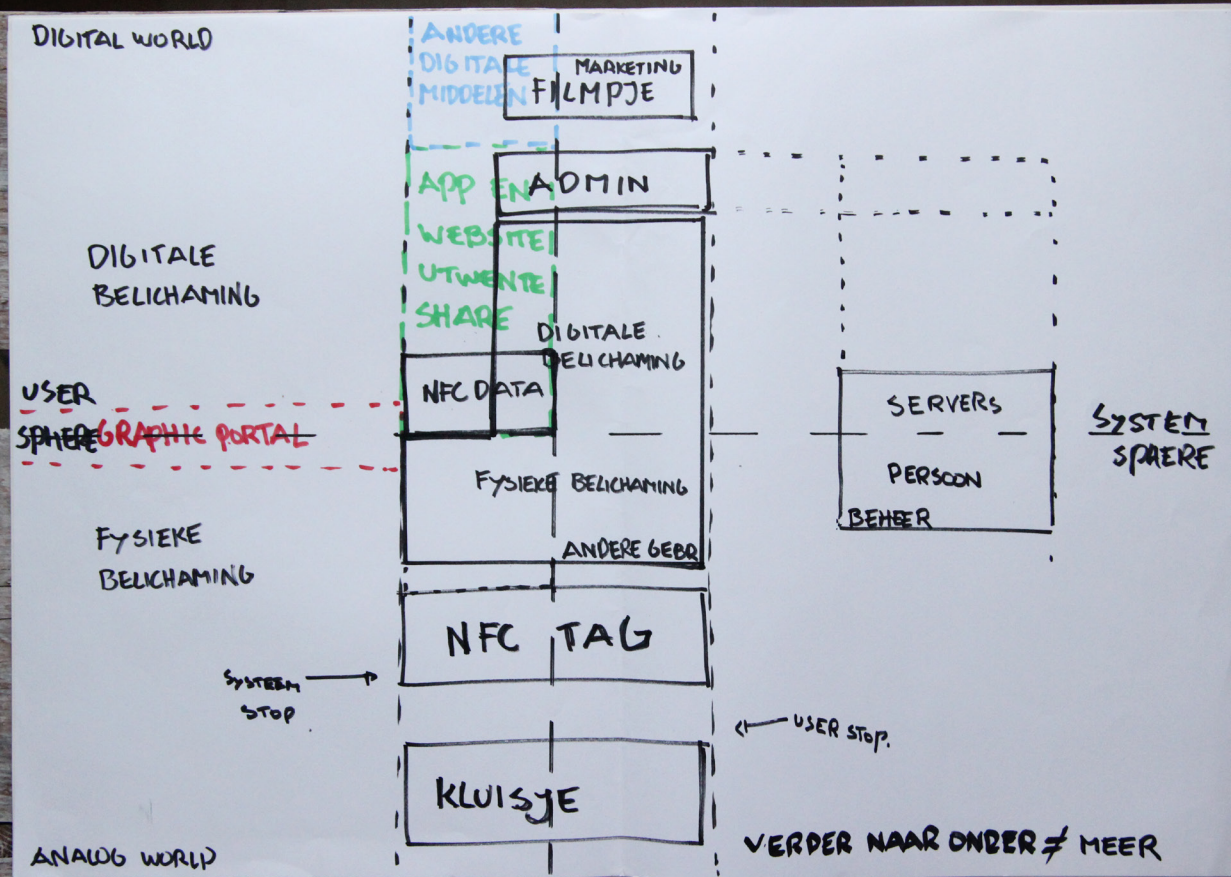 DIGITAL WORLD
ANDERE
DIGITALE
MIDDELEN
MARKETING
FILMPJE
APP EN
WEBSITE
UTWENTE
SHARE
ADMIN
DIGITALE
BELICHAMING
DIGITALE
BELICHAMING
NFC DATA
USER
SPHERE
GRAPHIC PORTAL
SERVERS
PERSOON
BEHEER
SYSTEM
SPAERE
FYSIEKE BELICHAMING
ANDERE GEBR
FYSIEKE
BELICHAMING
NFC TAG
SYSTEEM
STOP
USER STOP.
KLUISJE
ANALOG WORLD
VERDER NAAR ONDER ≠ MEER